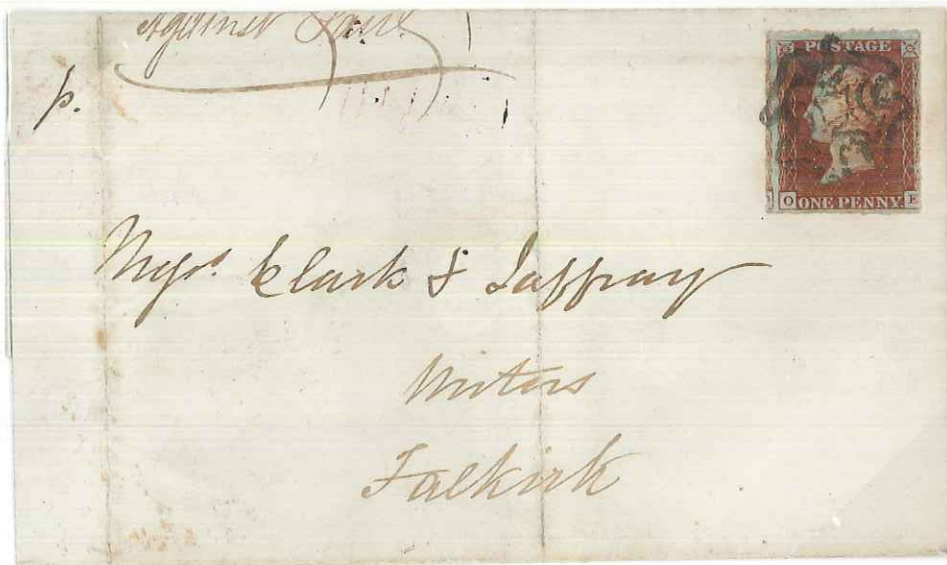 Against
p.
POSTAGE
O ONE PENNY F
Messrs Clark & Jaffray
Writers
Falkirk